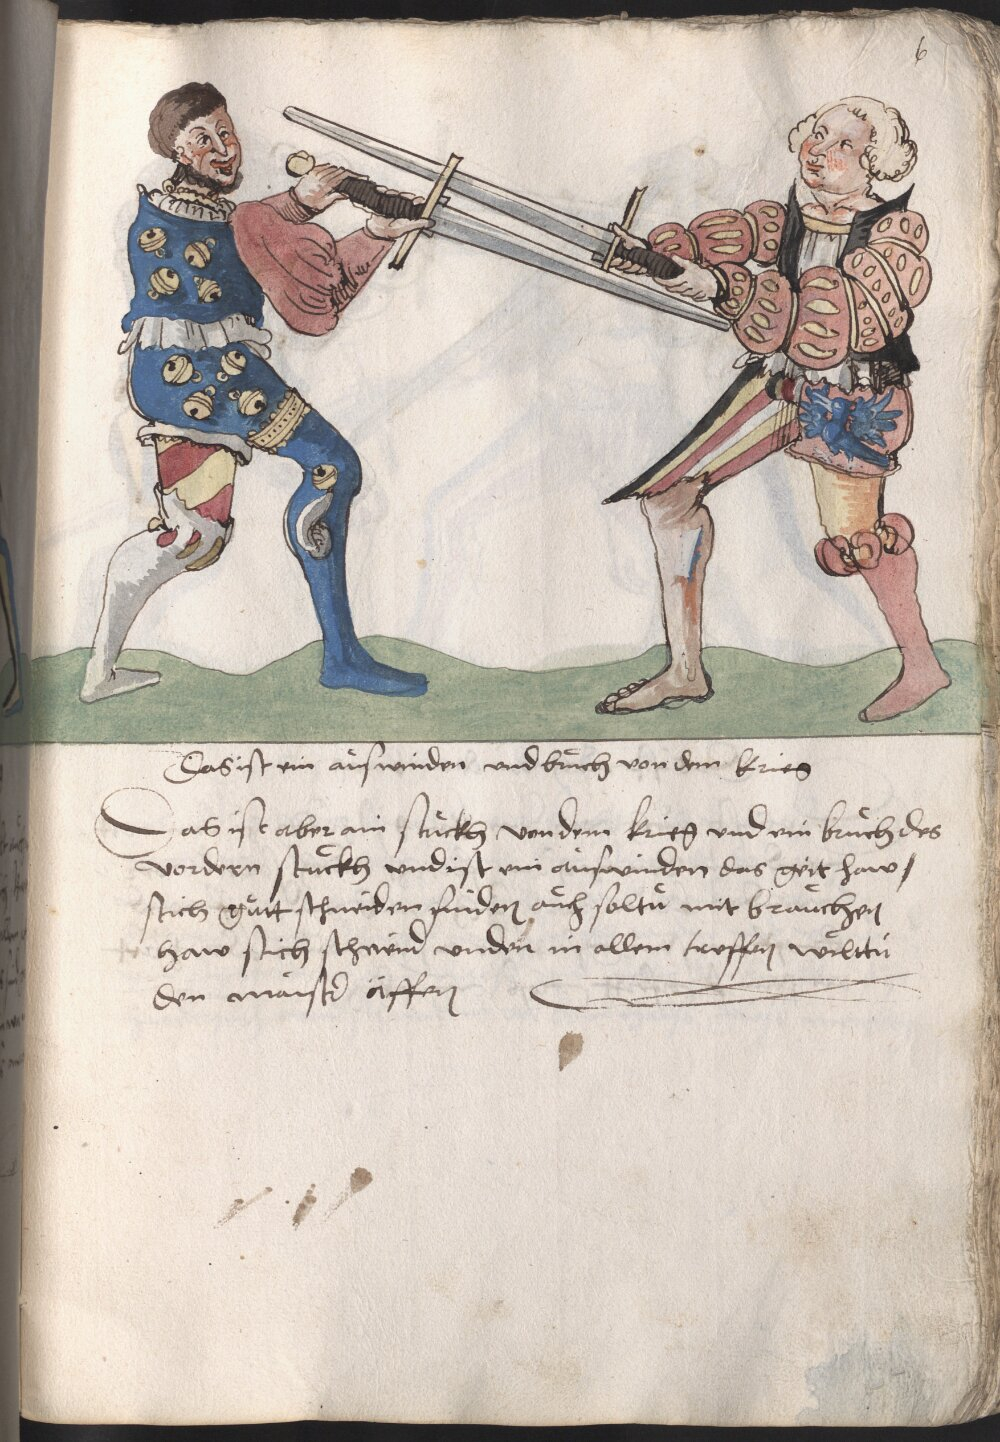 6
Das ist ein aŭswinden vnd brŭch von dem krieg
Das ist aber ain stŭckh von dem krieg vnd ein brŭch des
vordern stŭckh vnd ist ein aŭswinden das haw /
stich schneiden finden aŭch soltŭ mit braŭchen
haw stich schnid vnden in allem treffen wilttŭ
den maister äffen